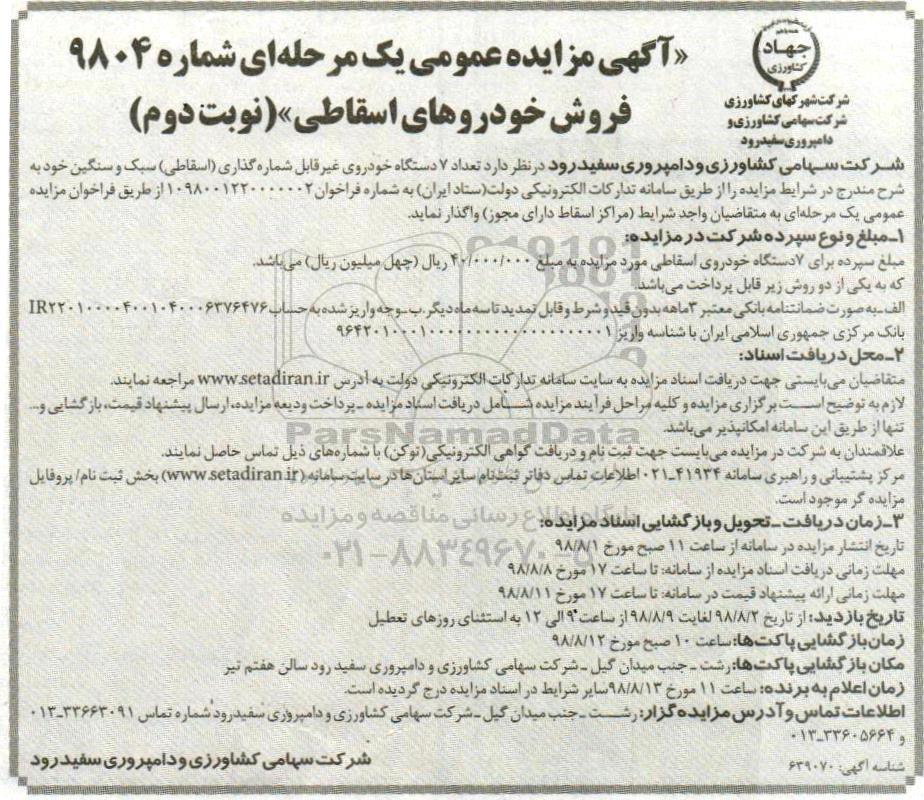 «آگهی مزایده عمومی یک مرحله‌ای شماره ۹۸۰۴
فروش خودروهای اسقاطی»(نوبت دوم)
جهاد
کشاورزی
شرکت شهرکهای کشاورزی
شرکت سهامی کشاورزی و
دامپروری سفیدرود
شرکت سهامی کشاورزی و دامپروری سفیدرود در نظر دارد تعداد ۷ دستگاه خودروی غیر قابل شماره گذاری (اسقاطی) سبک و سنگین خود به
شرح مندرج در شرایط مزایده را از طریق سامانه تدارکات الکترونیکی دولت(ستاد ایران) به شماره فراخوان ۱۰۹۸۰۰۱۲۲۰۰۰۰۰۰۲ از طریق فراخوان مزایده
عمومی یک مرحله‌ای به متقاضیان واجد شرایط (مراکز اسقاط دارای مجوز) واگذار نماید.
۱ـ مبلغ و نوع سپرده شرکت در مزایده:
مبلغ سپرده برای ۷دستگاه خودروی اسقاطی مورد مزایده به مبلغ ۴۰/۰۰۰/۰۰۰ ریال (چهل میلیون ریال) می‌باشد.
که به یکی از دو روش زیر قابل پرداخت می‌باشد.
الف ـ به صورت ضمانتنامه بانکی معتبر ۳ماهه بدون قید و شرط و قابل تمدید تا سه ماه دیگر. ب ـ وجه واریز شده به حساب IR۲۲۰۱۰۰۰۰۴۰۰۱۰۴۰۰۰۶۳۷۶۴۷۶
بانک مرکزی جمهوری اسلامی ایران با شناسه واریز
۲ـ محل دریافت اسناد:
متقاضیان می‌بایستی جهت دریافت اسناد مزایده به سایت سامانه تدارکات الکترونیکی دولت به آدرس www.setadiran.ir مراجعه نمایند.
لازم به توضیح است برگزاری مزایده و کلیه مراحل فرآیند مزایده شامل دریافت اسناد مزایده ـ پرداخت ودیعه مزایده، ارسال پیشنهاد قیمت، بازگشایی و...
تنها از طریق این سامانه امکانپذیر می‌باشد.
علاقمندان به شرکت در مزایده می‌بایست جهت ثبت نام و دریافت گواهی الکترونیکی(توکن) با شماره‌های ذیل تماس حاصل نمایند.
مرکز پشتیبانی و راهبری سامانه ۴۱۹۳۴ـ۰۲۱ اطلاعات تماس دفاتر ثبت‌نام سایر استان‌ها در سایت سامانه (www.setadiran.ir) بخش ثبت نام/ پروفایل
مزایده گر موجود است.
۳ـ زمان دریافت ـ تحویل و بازگشایی اسناد مزایده:
تاریخ انتشار مزایده در سامانه از ساعت ۱۱ صبح مورخ ۹۸/۸/۱
مهلت زمانی دریافت اسناد مزایده از سامانه: تا ساعت ۱۷ مورخ ۹۸/۸/۸
مهلت زمانی ارائه پیشنهاد قیمت در سامانه: تا ساعت ۱۷ مورخ ۹۸/۸/۱۱
تاریخ بازدید: از تاریخ ۹۸/۸/۲ لغایت ۹۸/۸/۹ از ساعت ۹ الی ۱۲ به استثنای روزهای تعطیل
زمان بازگشایی پاکت‌ها: ساعت ۱۰ صبح مورخ ۹۸/۸/۱۲
مکان بازگشایی پاکت‌ها: رشت ـ جنب میدان گیل ـ شرکت سهامی کشاورزی و دامپروری سفید رود سالن هفتم تیر
زمان اعلام به برنده: ساعت ۱۱ مورخ ۹۸/۸/۱۳سایر شرایط در اسناد مزایده درج گردیده است.
اطلاعات تماس و آدرس مزایده گزار: رشت ـ جنب میدان گیل ـ شرکت سهامی کشاورزی و دامپروری سفیدرود شماره تماس ۳۳۶۶۳۰۹۱ـ۰۱۳
و ۳۳۶۰۵۶۶۴ـ۰۱۳
شناسه آگهی: ۶۳۹۰۷۰
شرکت سهامی کشاورزی و دامپروری سفیدرود
ParsNamadData
پایگاه اطلاع رسانی مناقصه و مزایده
۰۲۱-۸۸۳۴۹۶۷۰-۵